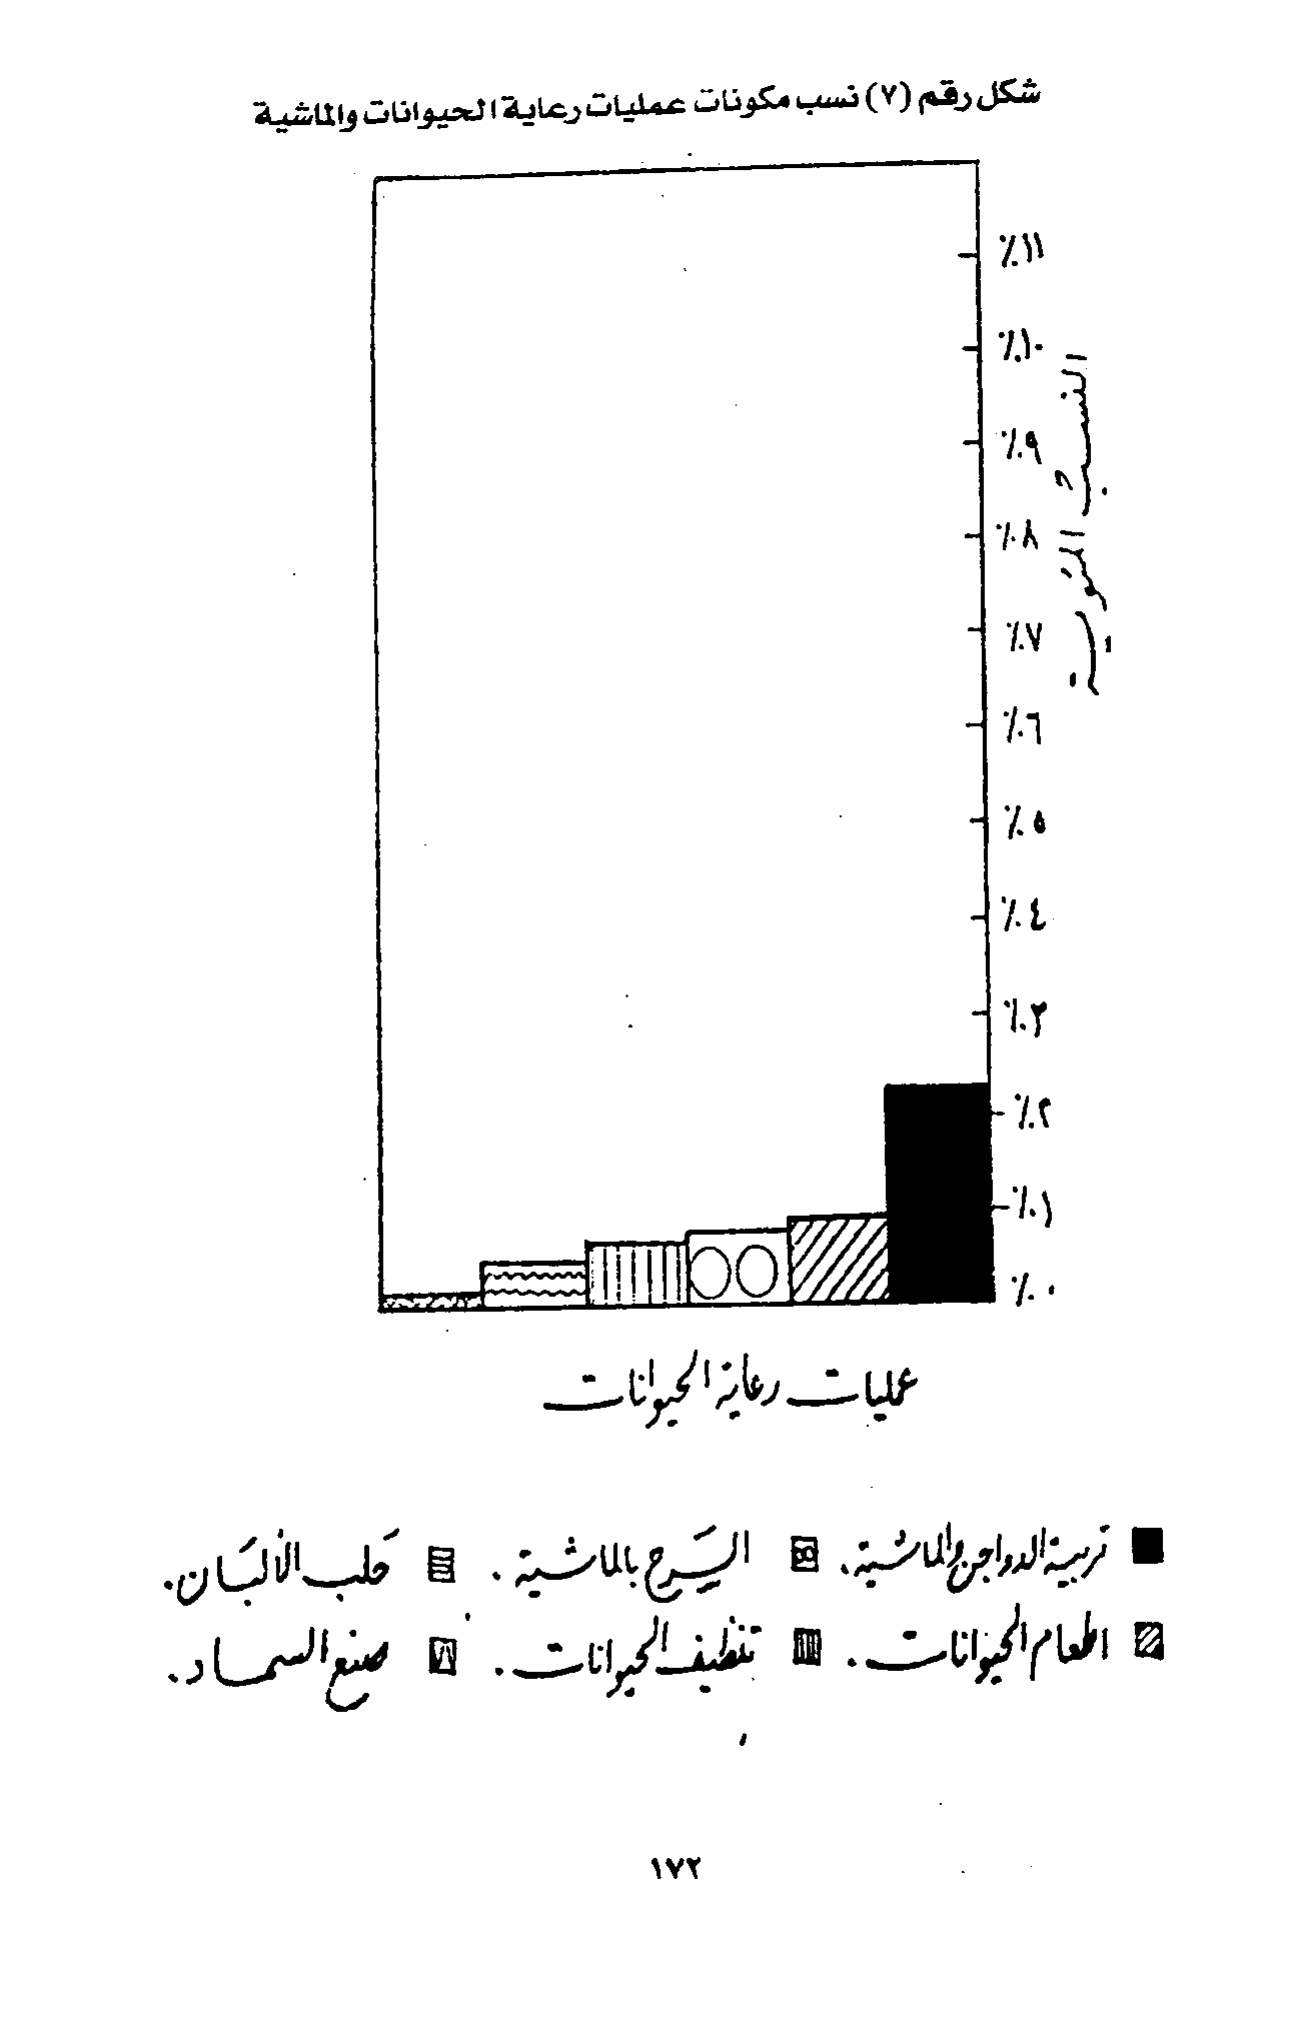 شكل رقم (٧) نسب مكونات عمليات رعاية الحيوانات والماشية
٪١١
٪١٠
٪٩
٪٨
٪٧
٪٦
٪٥
٪٤
٪٣
٪٢
٪١
٪٠
النسبة المئوية
عمليات رعاية الحيوانات
تربية الدواجن والماشية. السَرح بالماشية. حَلب الألبَان.
اطعام الحيوانات. تنظيف الحيوانات. صنع السماد.
١٧٢